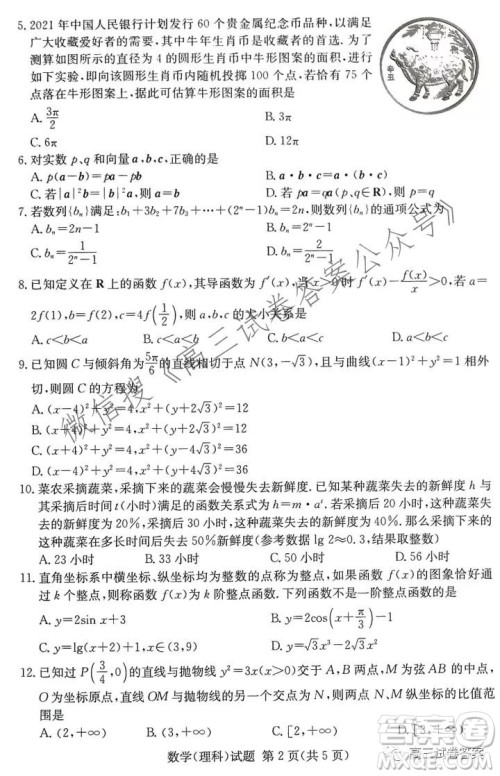 5. 2021 年中国人民银行计划发行 60 个贵金属纪念币品种,以满足
广大收藏爱好者的需要,其中牛年生肖币是收藏者的首选. 为了
测算如图所示的直径为 4 的圆形生肖币中牛形图案的面积,进行
如下实验,即向该圆形生肖币内随机投掷 100 个点,若恰有 75 个
点落在牛形图案上,据此可估算牛形图案的面积是
A. 3π/2 B. 3π
C. 6π D. 12π
6. 对实数 p、q 和向量 a,b,c,正确的是
A. p(a−b)=pa−pb B. a·b·c=(b·c)·a
C. 若|a|²=|b|²,则 a=b D. 若 pa=qa(p,q∈R),则 p=q
7. 若数列{bₙ}满足:b₁+3b₂+7b₃+…+(2ⁿ−1)bₙ=2n,则数列{bₙ}的通项公式为
A. bₙ=2n−1 B. bₙ=2/(2ⁿ−1)
C. bₙ=2ⁿ−1 D. bₙ=1/(2ⁿ−1)
8. 已知定义在 R 上的函数 f(x),其导函数为 f′(x),当 x>0 时,f′(x)−f(x)/x>0,若 a=
2f(1),b=f(2),c=4f(1/2),则 a,b,c 的大小关系是
A. c<b<a B. c<a<b D. b<a<c
9. 已知圆 C 与倾斜角为 5π/6 的直线相切于点 N(3,−√3),且与曲线(x−1)²+y²=1 相外
切,则圆 C 的方程为
A. (x−4)²+y²=4,x²+(y+2√3)²=12
B. (x−4)²+y²=4,x²+(y+4√3)²=36
C. (x+4)²+y²=4,x²+(y+4√3)²=36
D. (x+4)²+y²=4,x²+(y−2√3)²=12
10. 菜农采摘蔬菜,采摘下来的蔬菜会慢慢失去新鲜度. 已知某种蔬菜失去的新鲜度 h 与
其采摘后时间 t(小时)满足的函数关系式为 h=m·aᵗ. 若采摘后 10 小时,这种蔬菜失去
的新鲜度为 20%,采摘后 30 小时,这种蔬菜失去的新鲜度为 40%. 那么采摘下来的这种
蔬菜在多长时间后失去 50%新鲜度(参考数据 lg 2≈0.3,结果取整数)
A. 23 小时 B. 33 小时 C. 50 小时 D. 56 小时
11. 直角坐标系中横坐标、纵坐标均为整数的点称为整点,如果函数 f(x)的图象恰好通过
k 个整点,则称函数 f(x)为 k 阶整点函数. 下列函数不是一阶整点函数的是
A. y=2sin x+3 B. y=2cos(x+π/3)
C. y=lg(x+2)+1,x∈(3,9) D. y=√3x³−2√3x²
12. 已知过 P(3/4,0)的直线与抛物线 y²=3x(x>0)交于 A,B 两点,M 为弦 AB 的中点,
O 为坐标原点,直线 OM 与抛物线的另一个交点为 N,则两点 M、N 纵坐标的比值范
围是
A. (2,+∞) B. (3,+∞) C. [2,+∞) D. [3,+∞)
微信搜《高三试卷答案公众号》
高三试卷答案
数学(理科)试题 第 2 页(共 5 页)